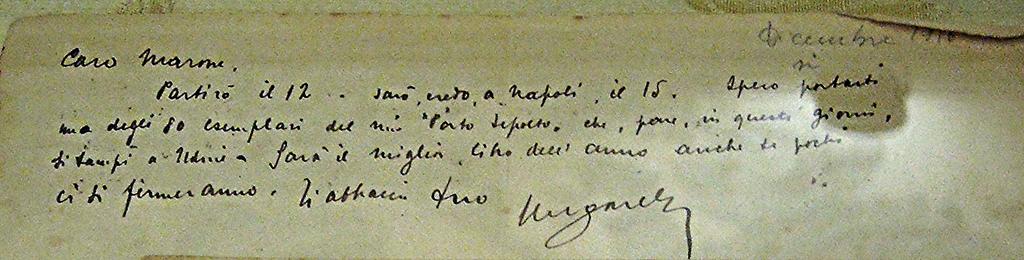 Dicembre 191
Caro Marone,
Partirò il 12 - sarò, credo, a Napoli, il 15. Spero portarti
uno degli 80 esemplari del mio "Porto Sepolto" che, pare, in questi giorni,
si stampi a Udine - Sarà il miglior libro dell'anno anche se pochi
ci si fermeranno. Ti abbraccio tuo
Ungaretti